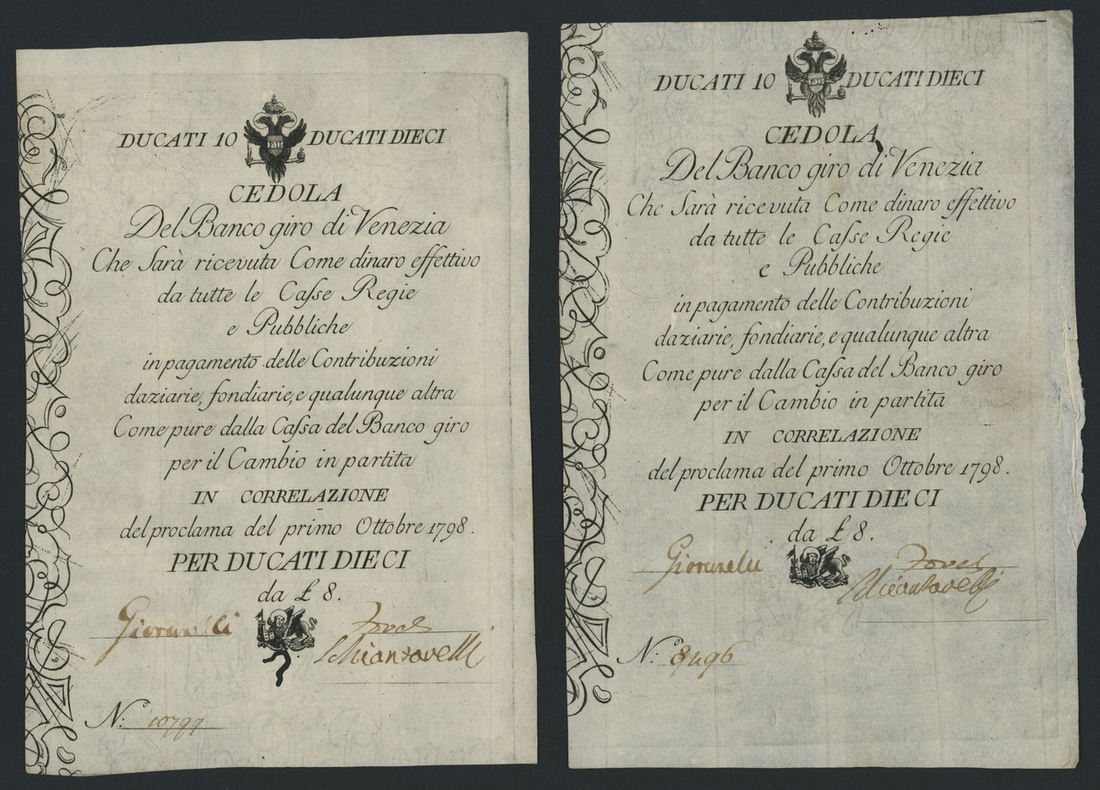 DUCATI 10 DUCATI DIECI
CEDOLA
Del Banco giro di Venezia
Che Sarà ricevuta Come dinaro effettivo
da tutte le Caſse Regie
e Pubbliche
in pagamento delle Contribuzioni
daziarie, fondiarie, e qualunque altra
Come pure dalla Caſsa del Banco giro
per il Cambio in partita
IN CORRELAZIONE
del proclama del primo Ottobre 1798.
PER DUCATI DIECI
da £ 8.
Giovanelli
Schiantarelli
N.º 10799
DUCATI 10 DUCATI DIECI
CEDOLA
Del Banco giro di Venezia
Che Sarà ricevuta Come dinaro effettivo
da tutte le Caſse Regie
e Pubbliche
in pagamento delle Contribuzioni
daziarie, fondiarie, e qualunque altra
Come pure dalla Caſsa del Banco giro
per il Cambio in partita
IN CORRELAZIONE
del proclama del primo Ottobre 1798.
PER DUCATI DIECI
da £ 8.
Giovanelli
N.º